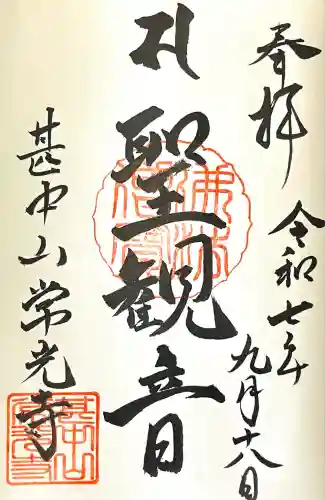 奉拝
令和七年
九月十八日
聖観音
甚中山常光寺